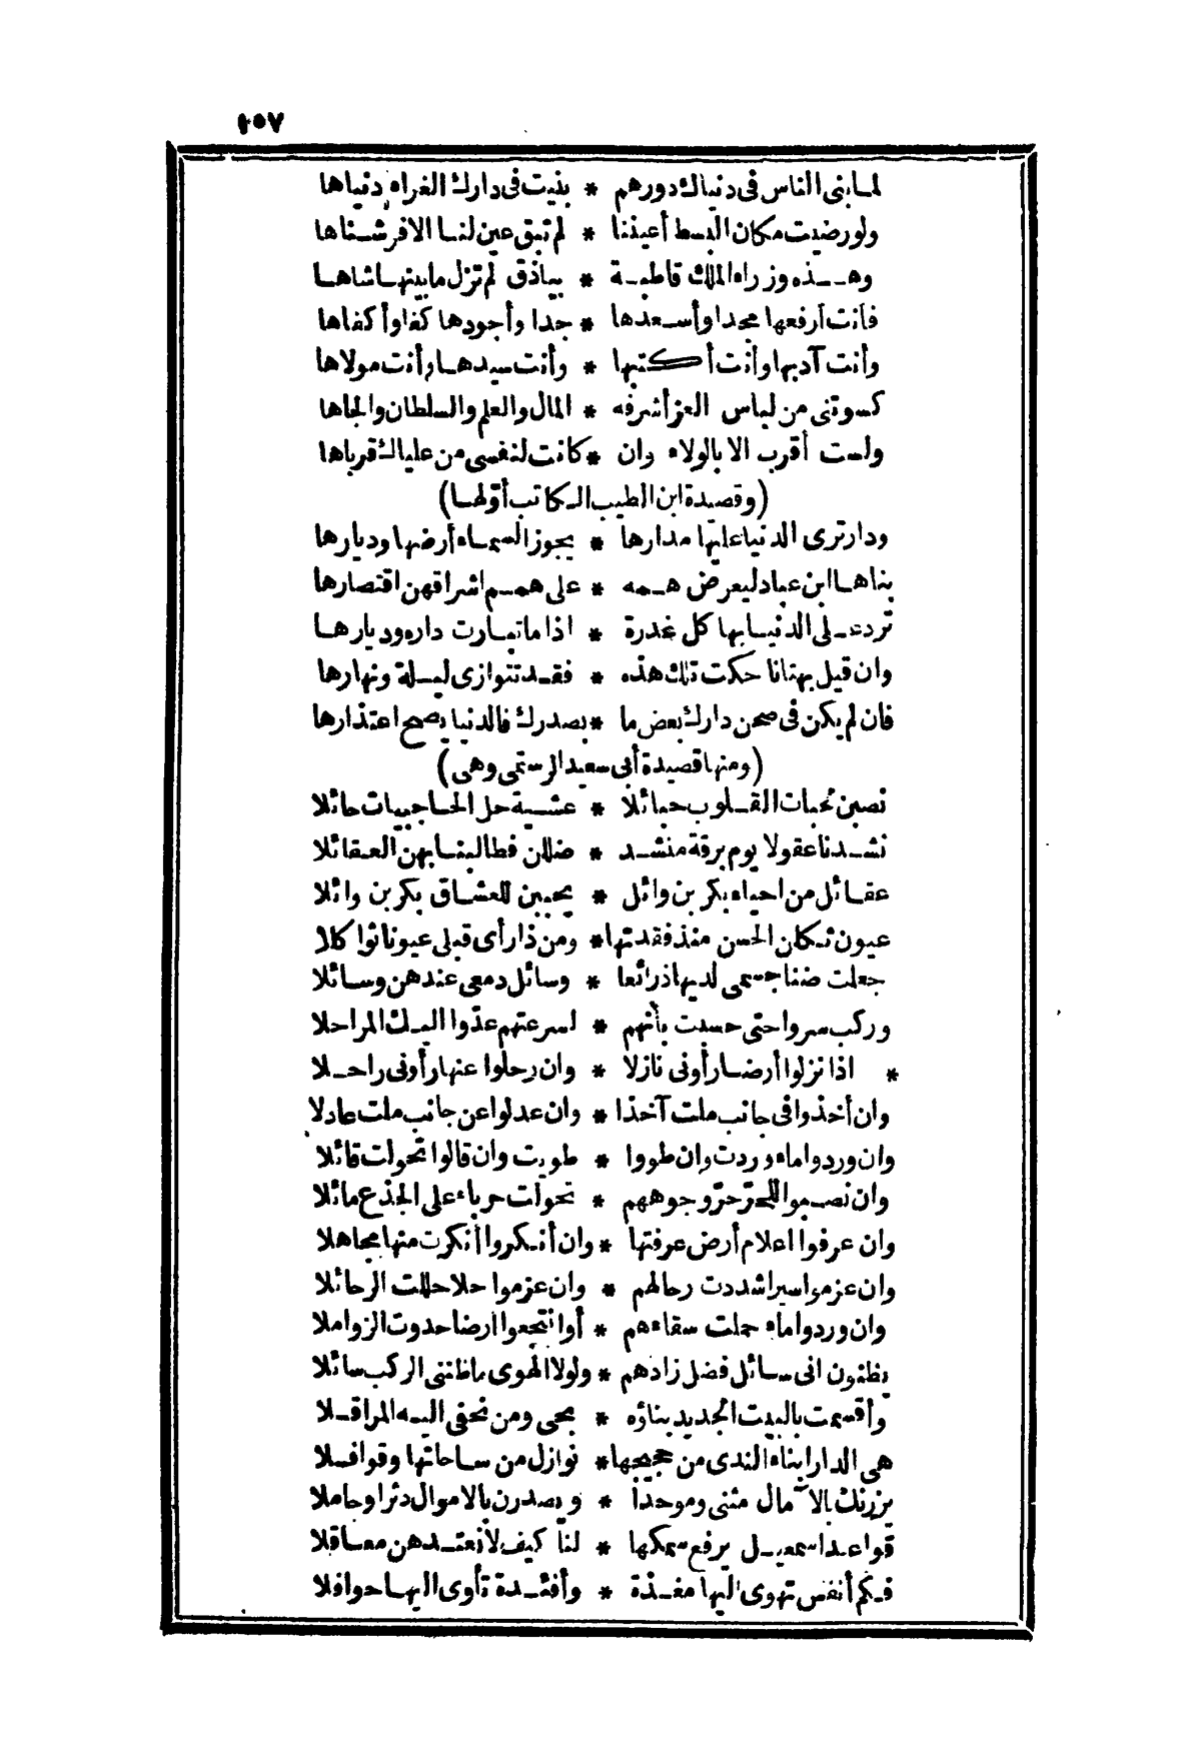 ٢٥٧
لما بنى الناس في دنياك دورهم * بنيت في دارك الغراء دنياها
ولو رضيت مكان البسط أعيننا * لم تبق عين لنا الا فرشناها
وهذه وزراء الملك قاطبة * بياذق لم تزل ما بينها شاها
فأنت أرفعها مجدا وأسعدها * جدا وأجودها كفا وأكفاها
وأنت آدبها وأنت أكتبها * وأنت سيدها وأنت مولاها
كسوتني من لباس العز أشرفه * المال والعلم والسلطان والجاها
ولست أقرب الا بالولاء وان * كانت لنفسي من علياك قرباها
(وقصيدة ابن الطيب الكاتب أولها)
ودار ترى الدنيا عليها مدارها * يجوز السماء أرضها وديارها
بناها ابن عباد ليعرض همه * على همم اشراقهن اقتصارها
ترد على الدنيا بها كل غدرة * اذا ما تبارت داره وديارها
وان قيل بهتانا حكت تلك هذه * فقد تتوازى ليلة ونهارها
فان لم يكن في صحن دارك بعض ما * بصدرك فالدنيا يصح اعتذارها
(ومنها قصيدة أبي سعيد الرستمي وهي)
نصبن لحبات القلوب حبائلا * عشية حل الحاجبيات حائلا
نشدنا عقولا يوم برقة منشد * ضللن فطالبنا بهن العقائلا
عقائل من احياء بكر بن وائل * يحببن للعشاق بكر بن وائلا
عيون ثكلن الحسن منذ فقدتها * ومن ذا رأى قبلي عيونا ثواكلا
جعلت ضنا جسمي لديها ذرائعا * وسائل دمعي عندهن وسائلا
وركب سروا حتى حسبت بأنهم * لسرعتهم عدوا اليك المراحلا
* اذا نزلوا أرضا رأوني نازلا * وان رحلوا عنها رأوني راحلا
وان أخذوا في جانب ملت آخذا * وان عدلوا عن جانب ملت عادلا
وان وردوا ماء وردت وان طووا * طويت وان قالوا تحولت قائلا
وان نصبوا للحر حر وجوههم * تحولت حرباء على الجذع ماثلا
وان عرفوا اعلام أرض عرفتها * وان أنكروا أنكرت منها مجاهلا
وان عزموا سيرا شددت رحالهم * وان عزموا حلا حللت الرحائلا
وان وردوا ماء حملت سقاءهم * أو انتجعوا ارضا حدوت الزواملا
يظنون اني سائل فضل زادهم * ولولا الهوى ما ظنني الركب سائلا
وأقسمت بالبيت الجديد بناؤه * بحي ومن نحفى اليه المراقلا
هي الدار ابناء الندى من حجيجها * نوازل من ساحاتها وقوافلا
يزرنك بالآمال مثنى وموحدا * ويصدرن بالاموال دثرا وجاملا
قواعد اسمعيل يرفع سمكها * لنا كيف لا نعتدهن معاقلا
فكم أنفس تهوى اليها مغذة * وأفئدة تأوى اليها حوافلا